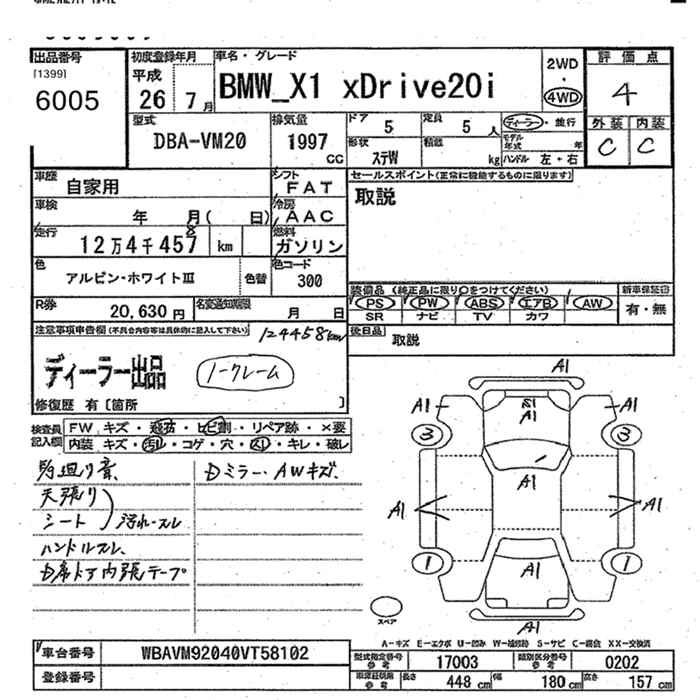 出品番号
[1399]
6005
初度登録年月
平成
26 7月
車名・グレード
BMW_X1 xDrive20i
2WD
・
4WD
評価点
4
外装 内装
C C
型式
DBA-VM20
排気量
1997
CC
ドア 5
定員 5 人
ディーラー・並行
形状 ステW
積載 kg
モデル年式 年
ハンドル 左・右
車歴 自家用
シフト FAT
セールスポイント(正常に機能するものに限ります)
取説
車検 年 月( 日)
冷房 AAC
走行 12万4千457 km
8
燃料 ガソリン
色 アルピン・ホワイトIII
色替
色コード 300
装備品 (純正品に限り○をつけてください)
新車保証書
PS PW ABS エアB AW
SR ナビ TV カワ
有・無
R券 20,630 円
名変通知期限 月 日
後日品 取説
注意事項申告欄(不具合内容等は具体的に記入して下さい)
124458km
ディーラー出品
ノークレーム
修復歴 有 [箇所 ]
検査員記入欄
FW キズ・飛石・ヒビ割・リペア跡・×要
内装 キズ・汚れ・コゲ・穴・スレ・キレ・破レ
天張り
シート
汚れ・スレ
ハンドルスレ
ミラー・AWキズ
ドア内張テープ
A1
A1
A1
A1
3
3
A1
A1
A1
1
1
A1
A1
スペア
A-キズ E-エクボ U-凹み W-補修跡 S-サビ C-腐食 XX-交換済
車台番号 WBAVM92040VT58102
登録番号
型式指定番号 参考 17003
類別区分番号 参考 0202
車検証記載 参考 長さ 448 cm 幅 180 cm 高さ 157 cm